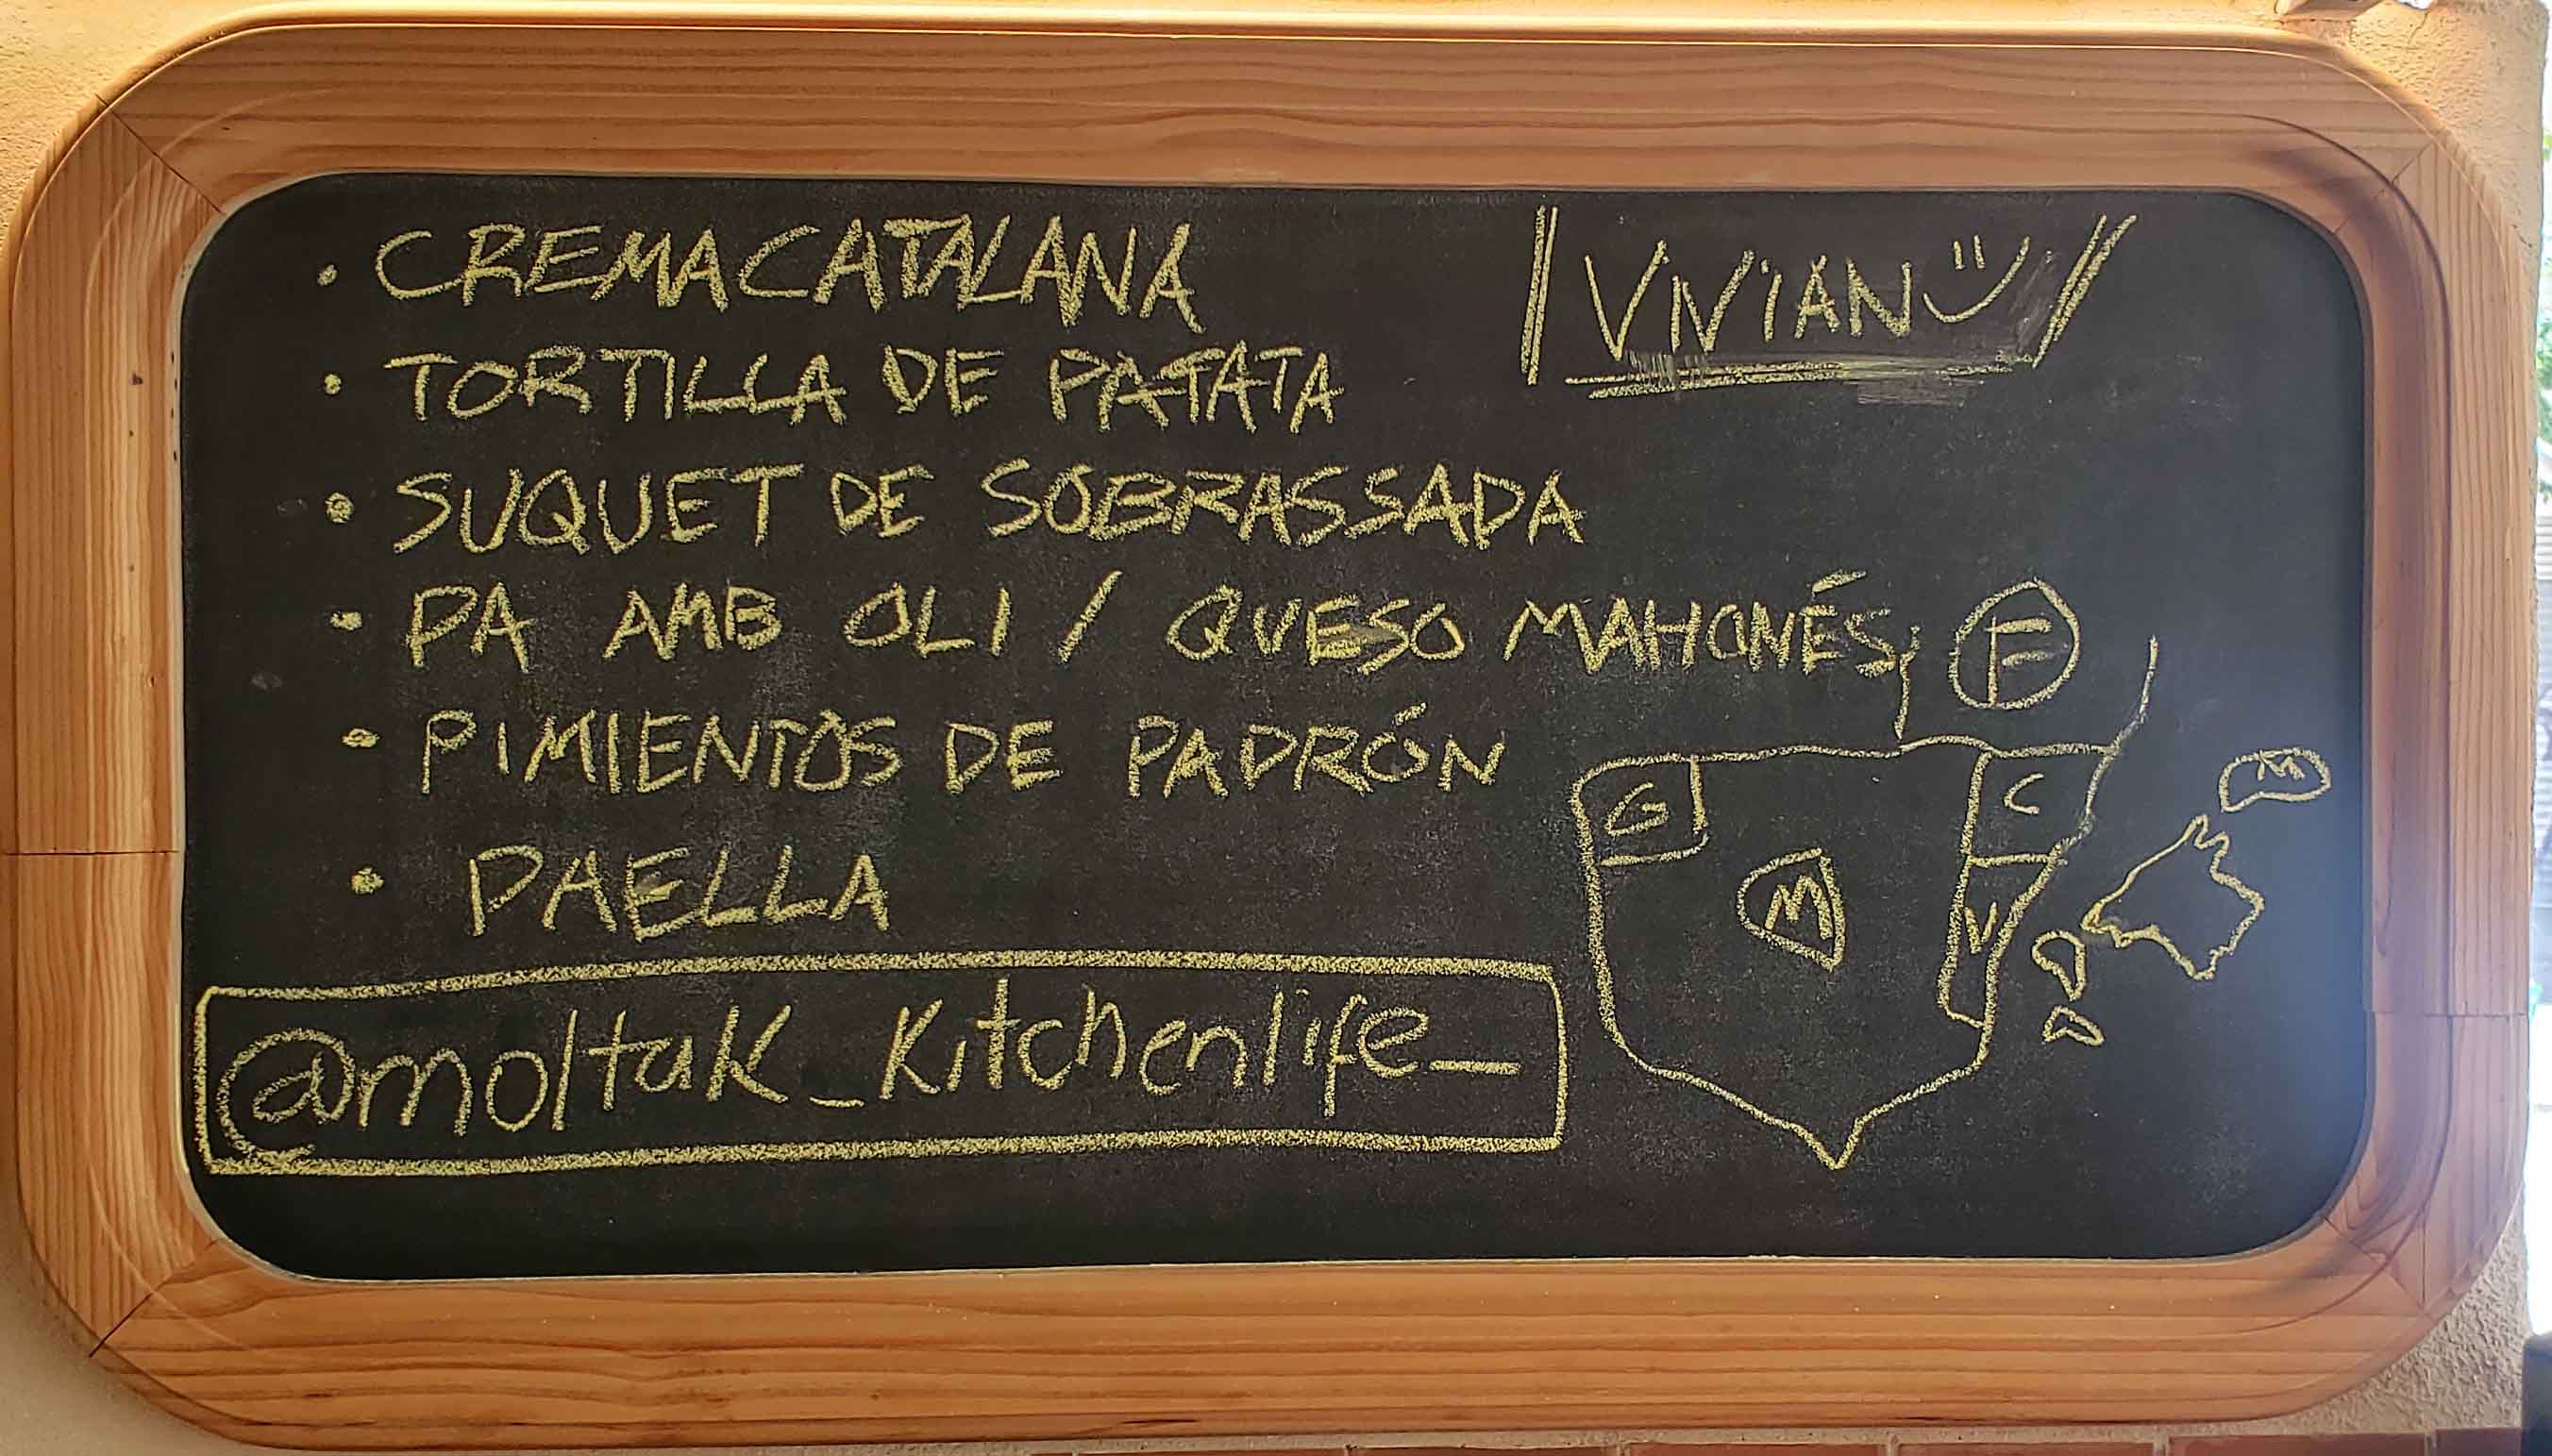 • CREMA CATALANA
VIVIAN
• TORTILLA DE PATATA
• SUQUET DE SOBRASSADA
• PA AMB OLI / QUESO MAHONÉS
F
• PIMIENTOS DE PADRÓN
G
C
M
• PAELLA
M
V
@moltak_Kitchenlife_